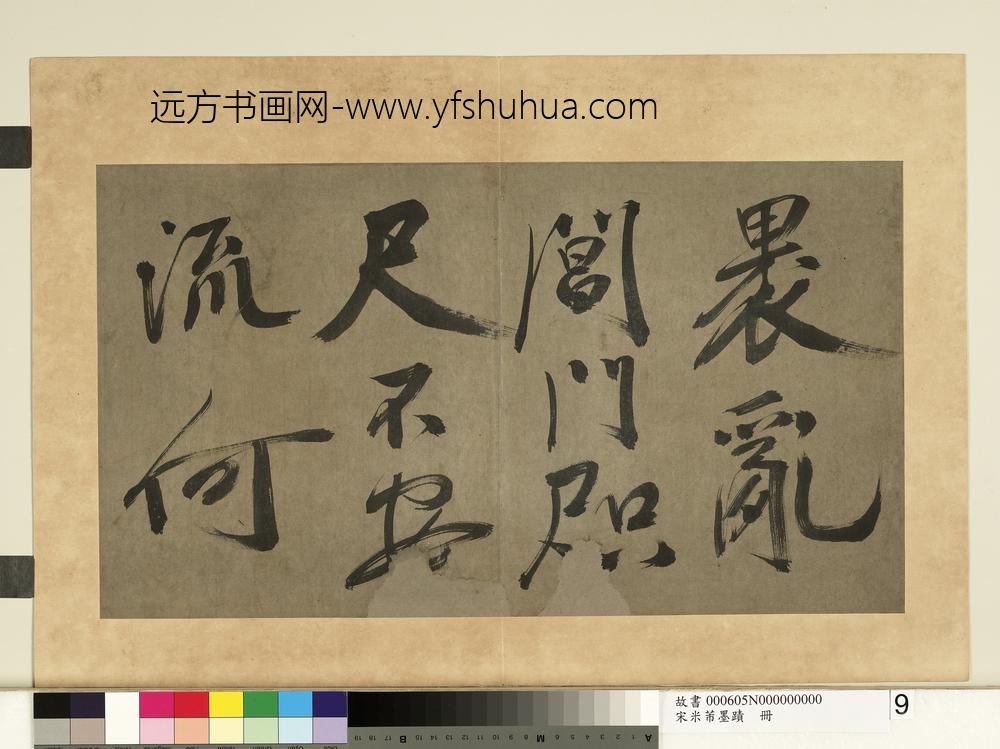 远方书画网-www.yfshuhua.com
褁亂
閶門咫
尺不
流何
故書 000605N000000000
宋米芾墨蹟 冊
9